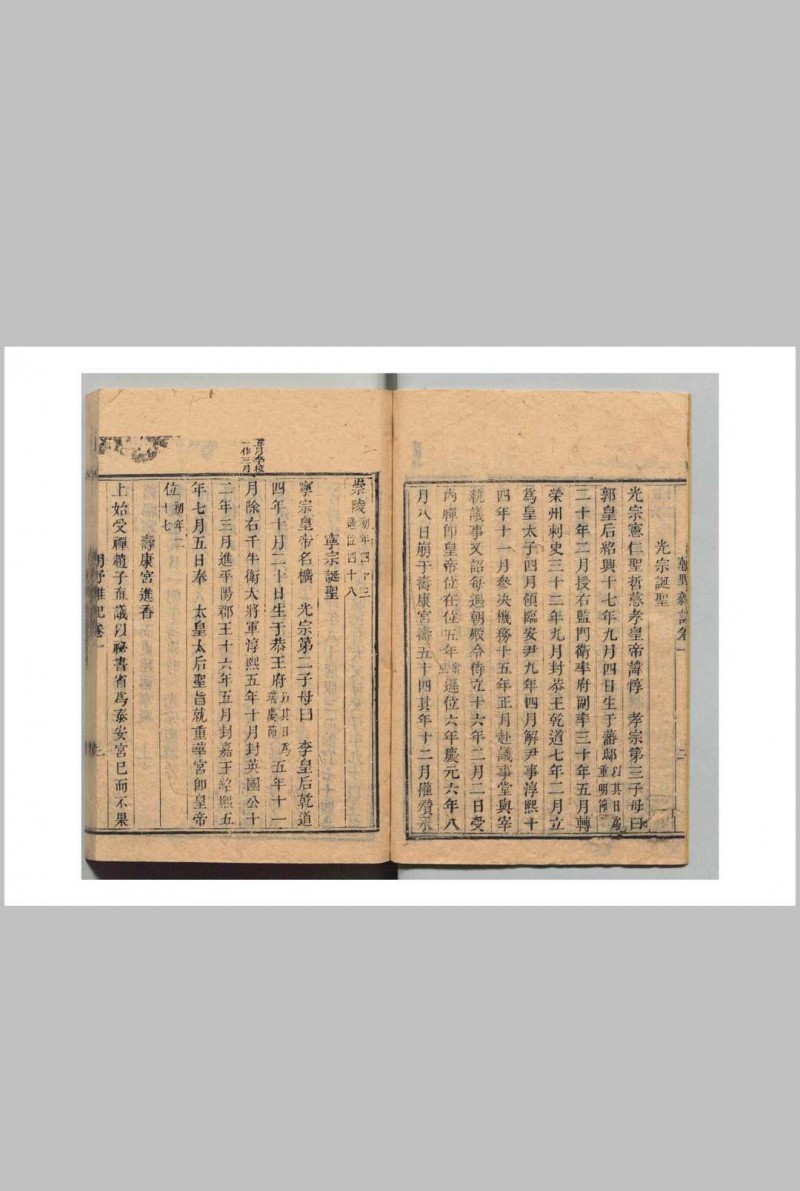 朝野雜記卷一 二
光宗誕聖
光宗憲仁聖哲慈孝皇帝諱惇 孝宗第三子母曰
郭皇后紹興十七年九月四日生于藩邸以其日為重明節
二十年二月授右監門衛率府副率三十年五月轉
榮州刺史三十二年九月封恭王乾道七年二月立
為皇太子四月領臨安尹九年四月解尹事淳熙十
四年十一月參决機務十五年正月赴議事堂與宰
執議事又詔每過朝殿令侍立十六年二月二日受
內禪即皇帝位在位五年遜位六年慶元六年八
月八日崩于壽康宮壽五十四其年十二月權攢永
崇陵初年四十三遜位四十八
寧宗誕聖
寧宗皇帝名擴 光宗第二子母曰 李皇后乾道
四年十月二十日生于恭王府以其日為瑞慶節五年十一
月除右千牛衛大將軍淳熙五年十月封英國公十
二年三月進平陽郡王十六年五月封嘉王紹熙五
年七月五日奉 太皇太后聖旨就重華宮即皇帝
位初年二十七
壽康宮進香
上始受禪趙子直議以秘書省為泰安宮已而不果
朝野雜記卷一
一作三月